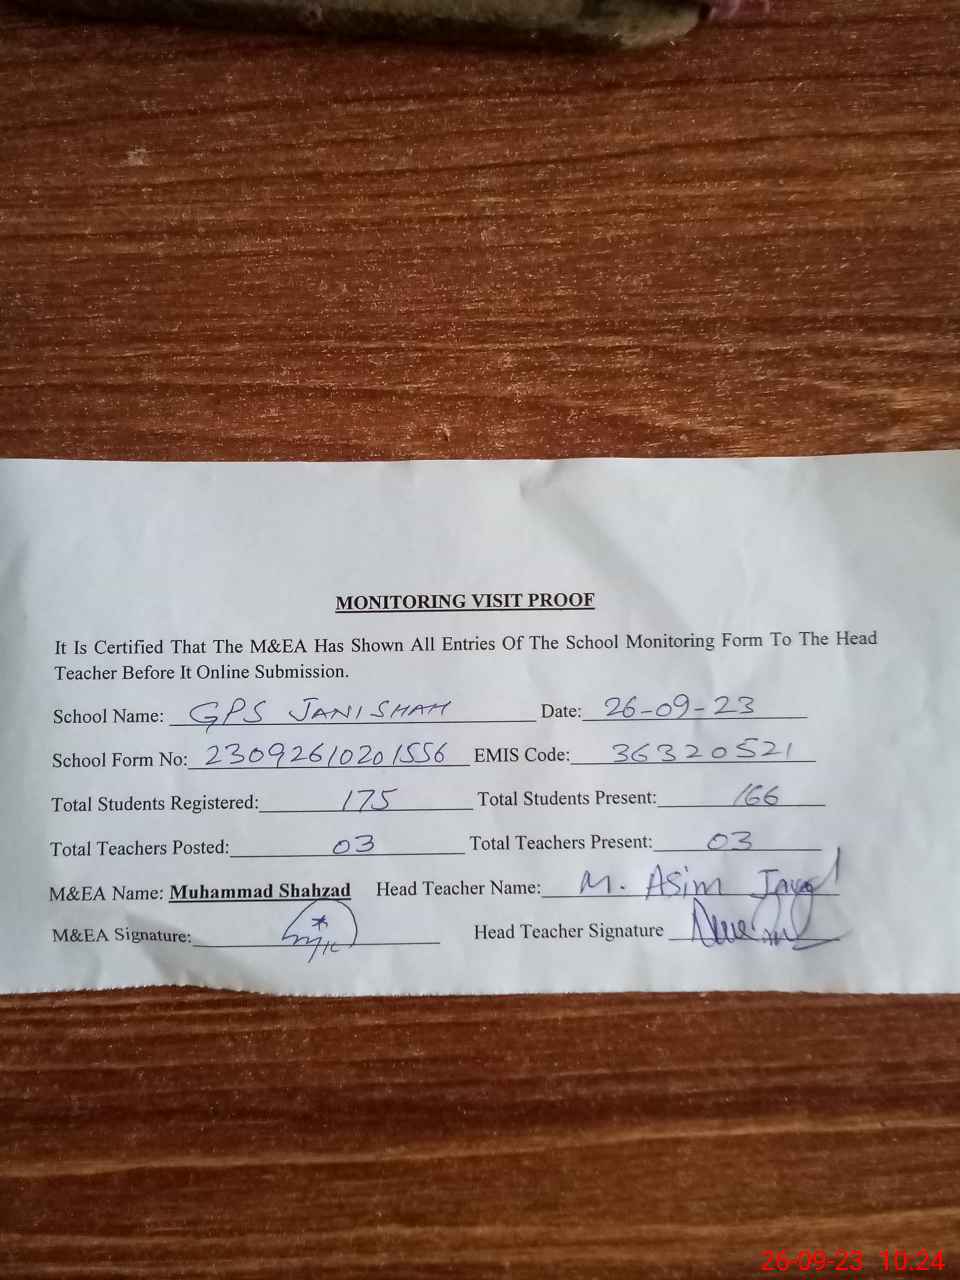 MONITORING VISIT PROOF
It Is Certified That The M&EA Has Shown All Entries Of The School Monitoring Form To The Head
Teacher Before It Online Submission.
School Name: GPS JANISHAH Date: 26-09-23
School Form No: 23092610201556 EMIS Code: 36320521
Total Students Registered: 175 Total Students Present: 166
Total Teachers Posted: 03 Total Teachers Present: 03
M&EA Name: Muhammad Shahzad Head Teacher Name: M. Asim
M&EA Signature: Head Teacher Signature
26-09-23 10:24